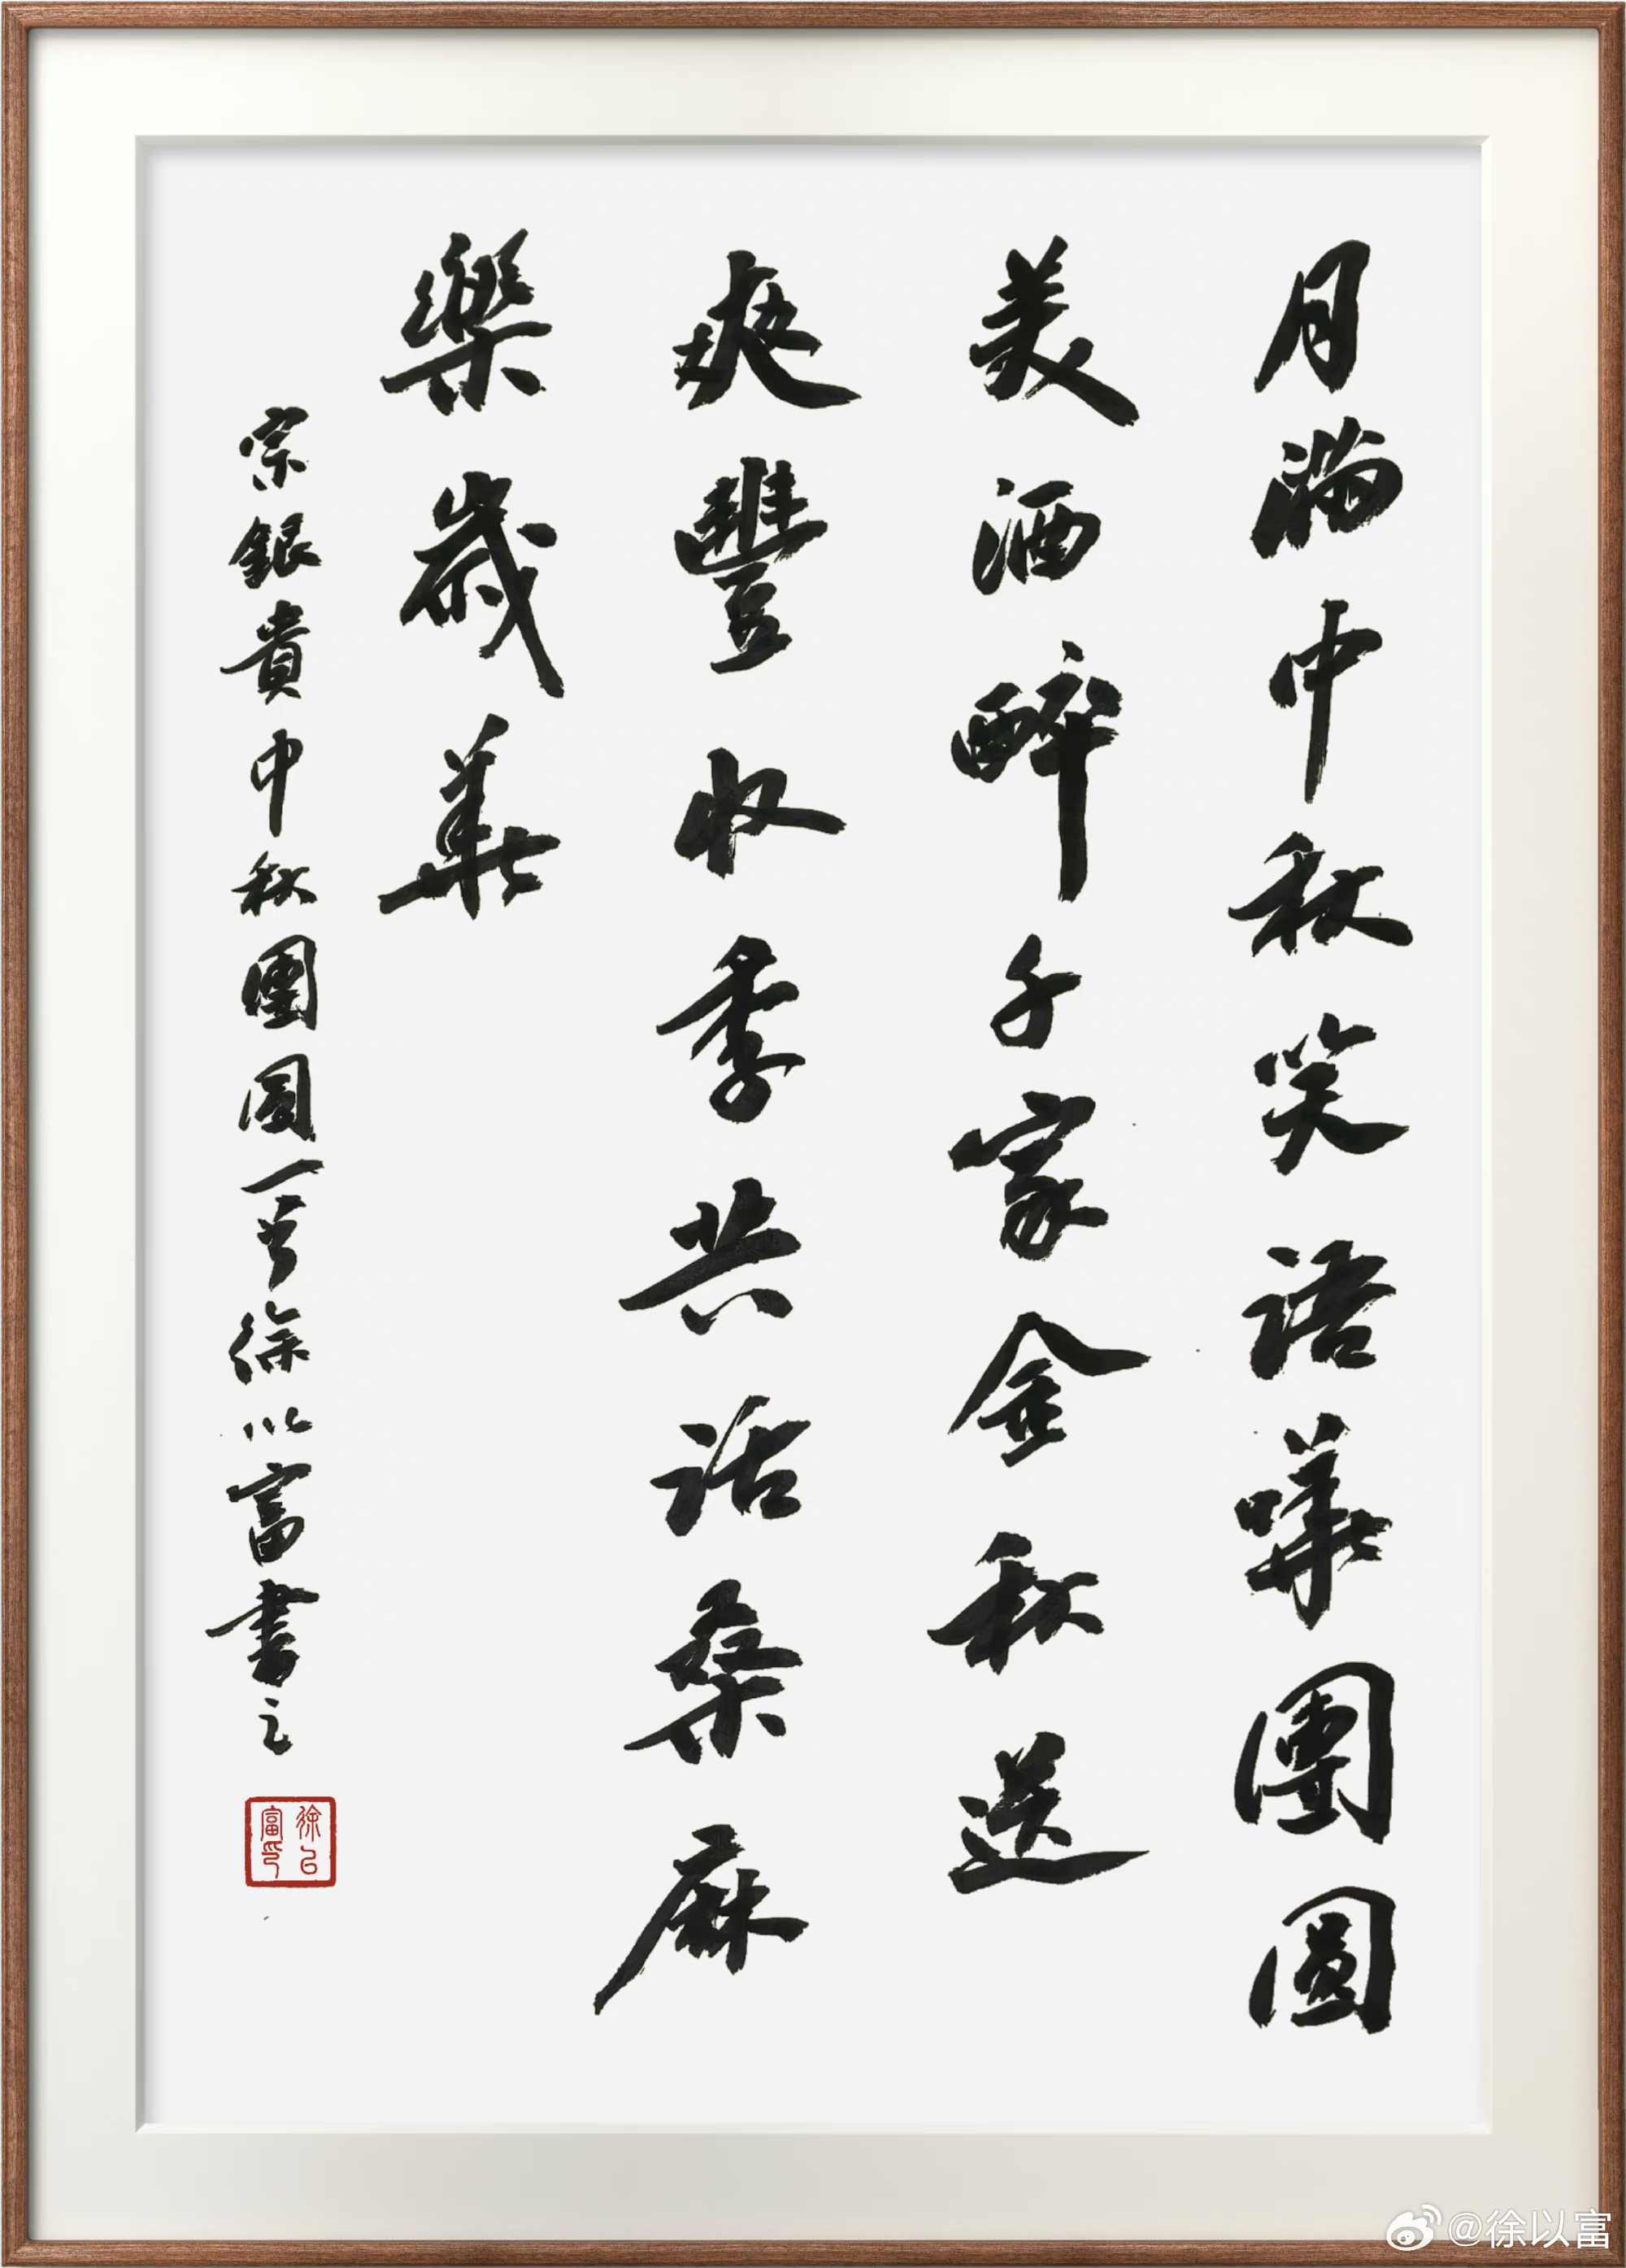 月滿中秋笑語嘩團圓
美酒醉千家金秋送
爽豐收季共話桑麻
樂歲華
宗銀貴中秋團圓一首徐以富書之
徐以富印
@徐以富